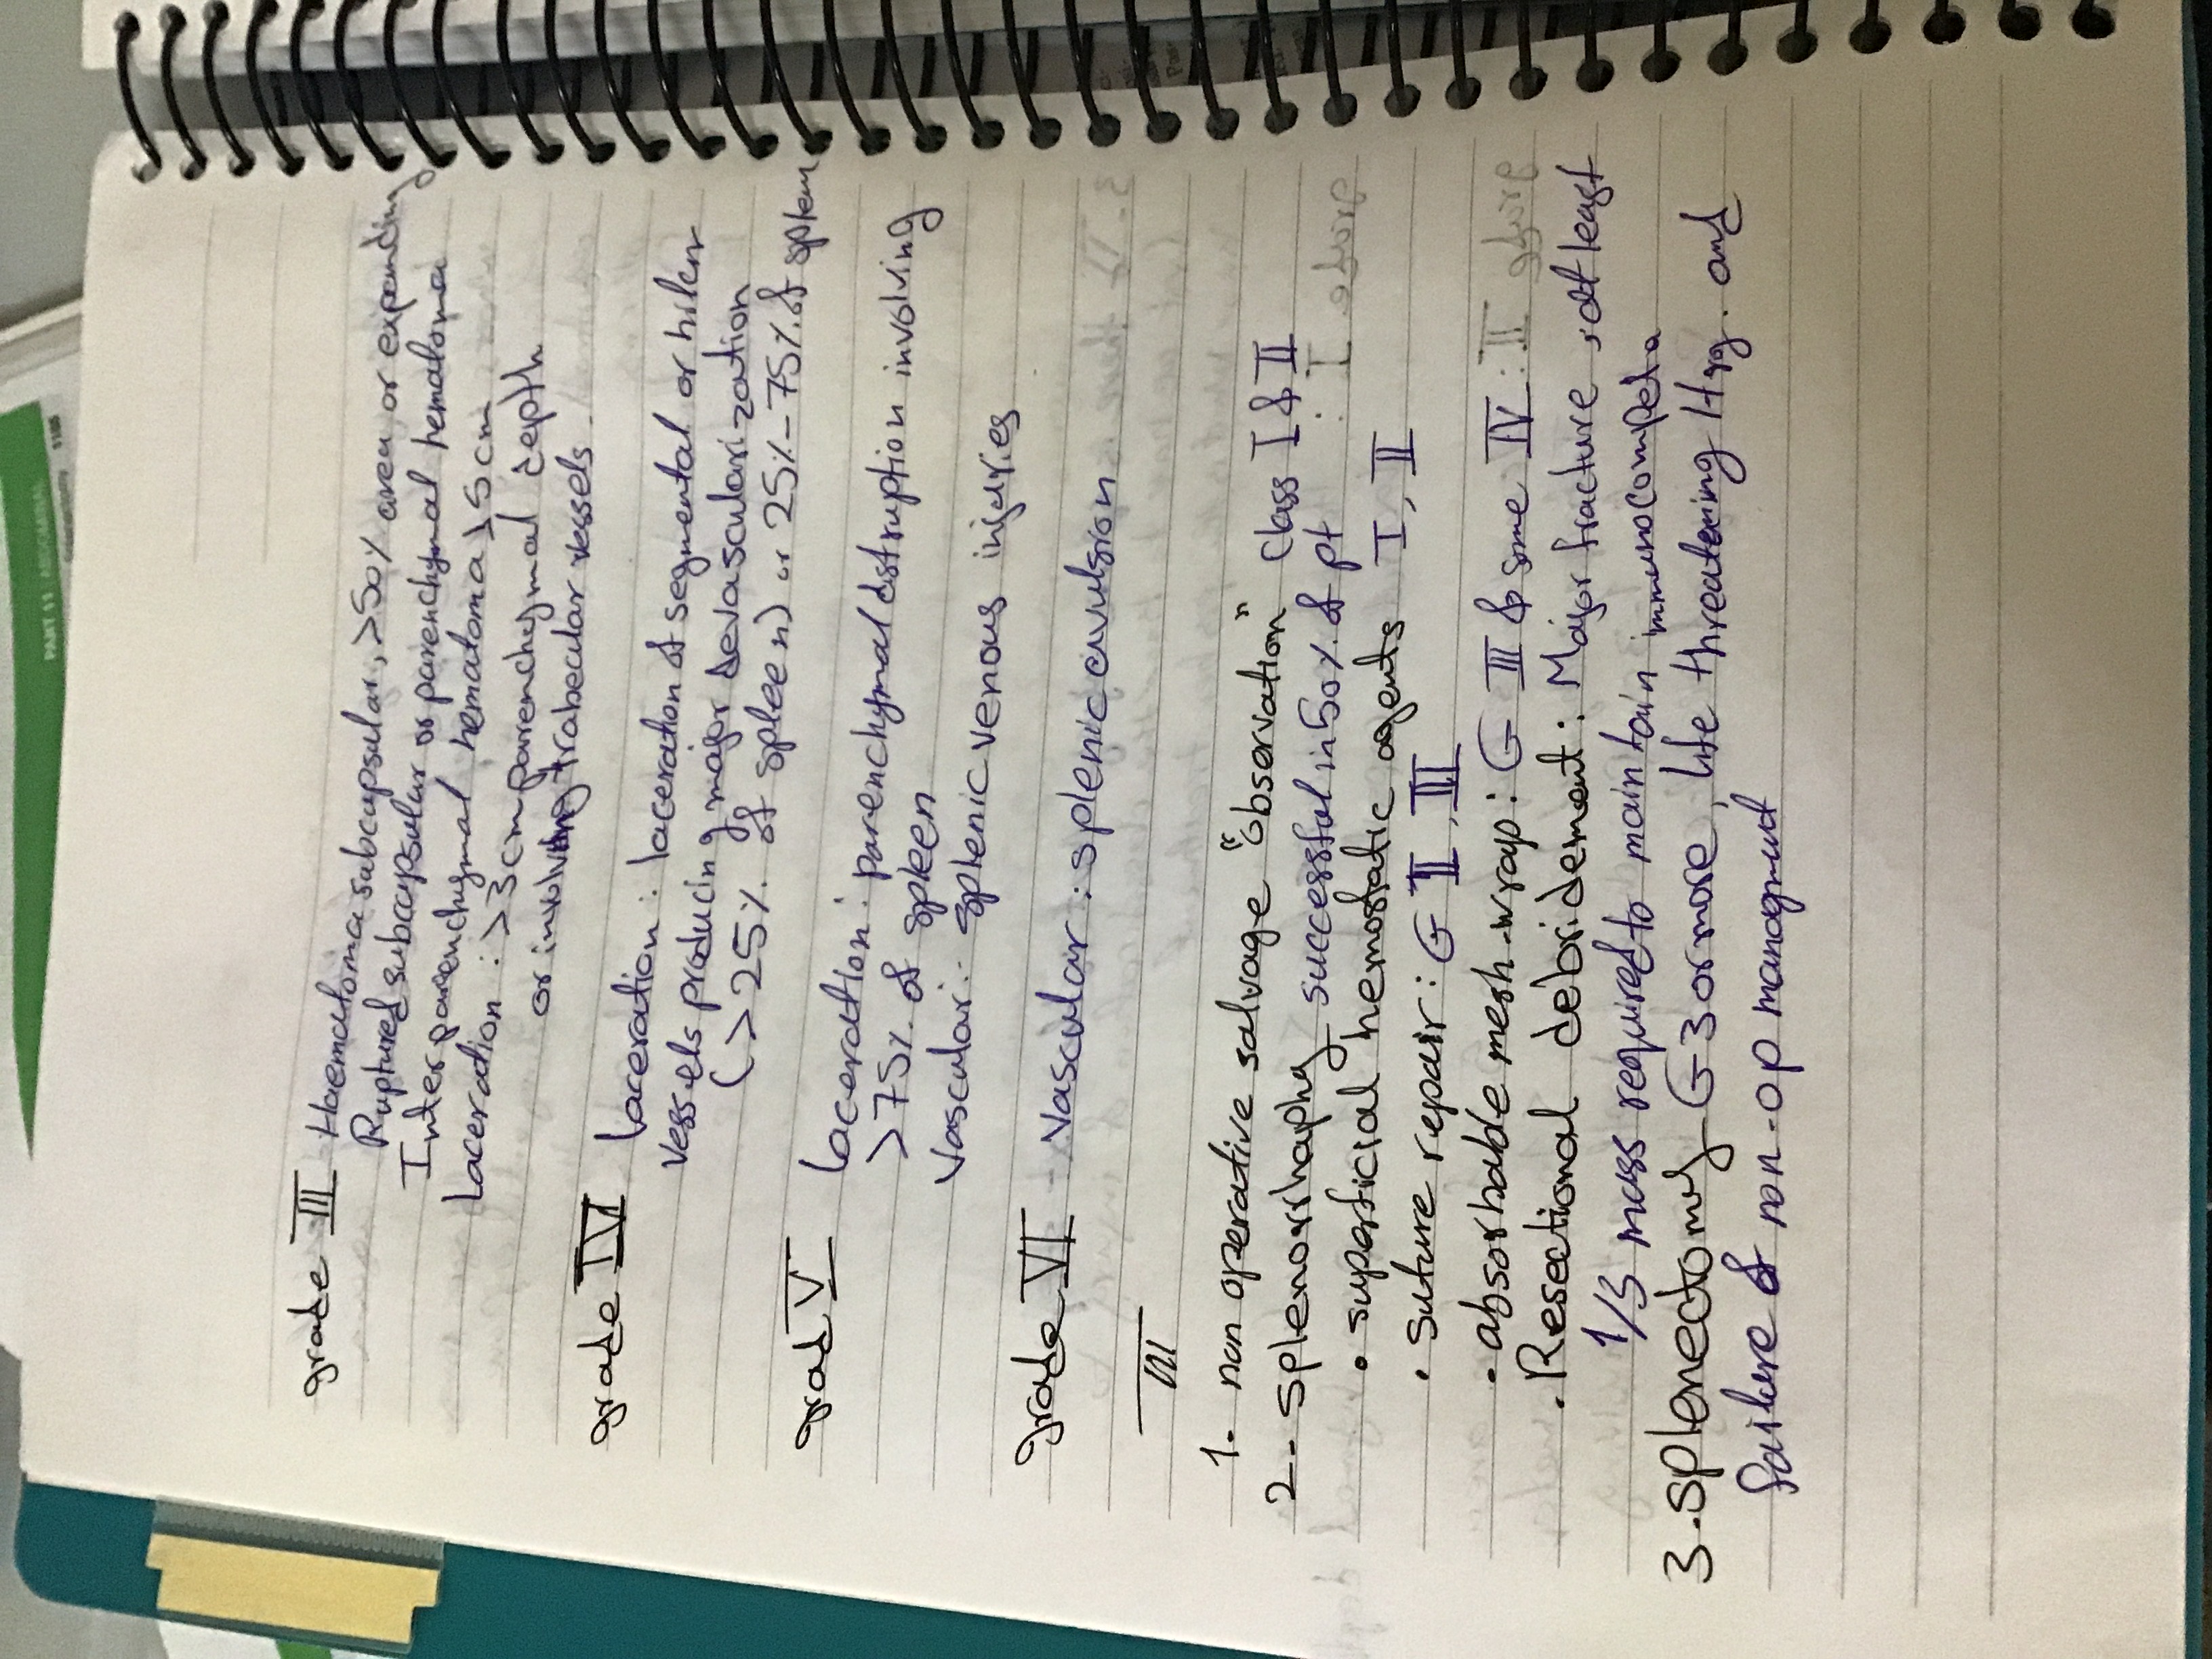 grade III Haematoma subcapsular, >50% area or expanding
Ruptured subcapsular or parenchymal hematoma
Interparenchymal hematoma >5cm
laceration: >3cm parenchymal depth
or involving trabecular vessels
grade IV laceration: laceration of segmental or hilar
vessels producing major devascularization
(>25% of spleen) or 25%-75% of spleen
grad V laceration: parenchymal distruption involving
>75% of spleen
Vascular: splenic venous injuries
grade VI Vascular: splenic avulsion
III
1- non operative salvage "observation" class I & II
2-- splenorrhaphy successful in 50% of pt
• superficial hemostatic agents I, II
• suture repair: G II, III
• absorbable mesh wrap: G III & some IV
• Resectional debridement: Major fracture, at least
1/3 mass required to maintain immunocompeta
3-splenectomy G3 or more, life threatening Hrg. and
failure of non-op managmnt
PART 11 ABDOMINAL
1166